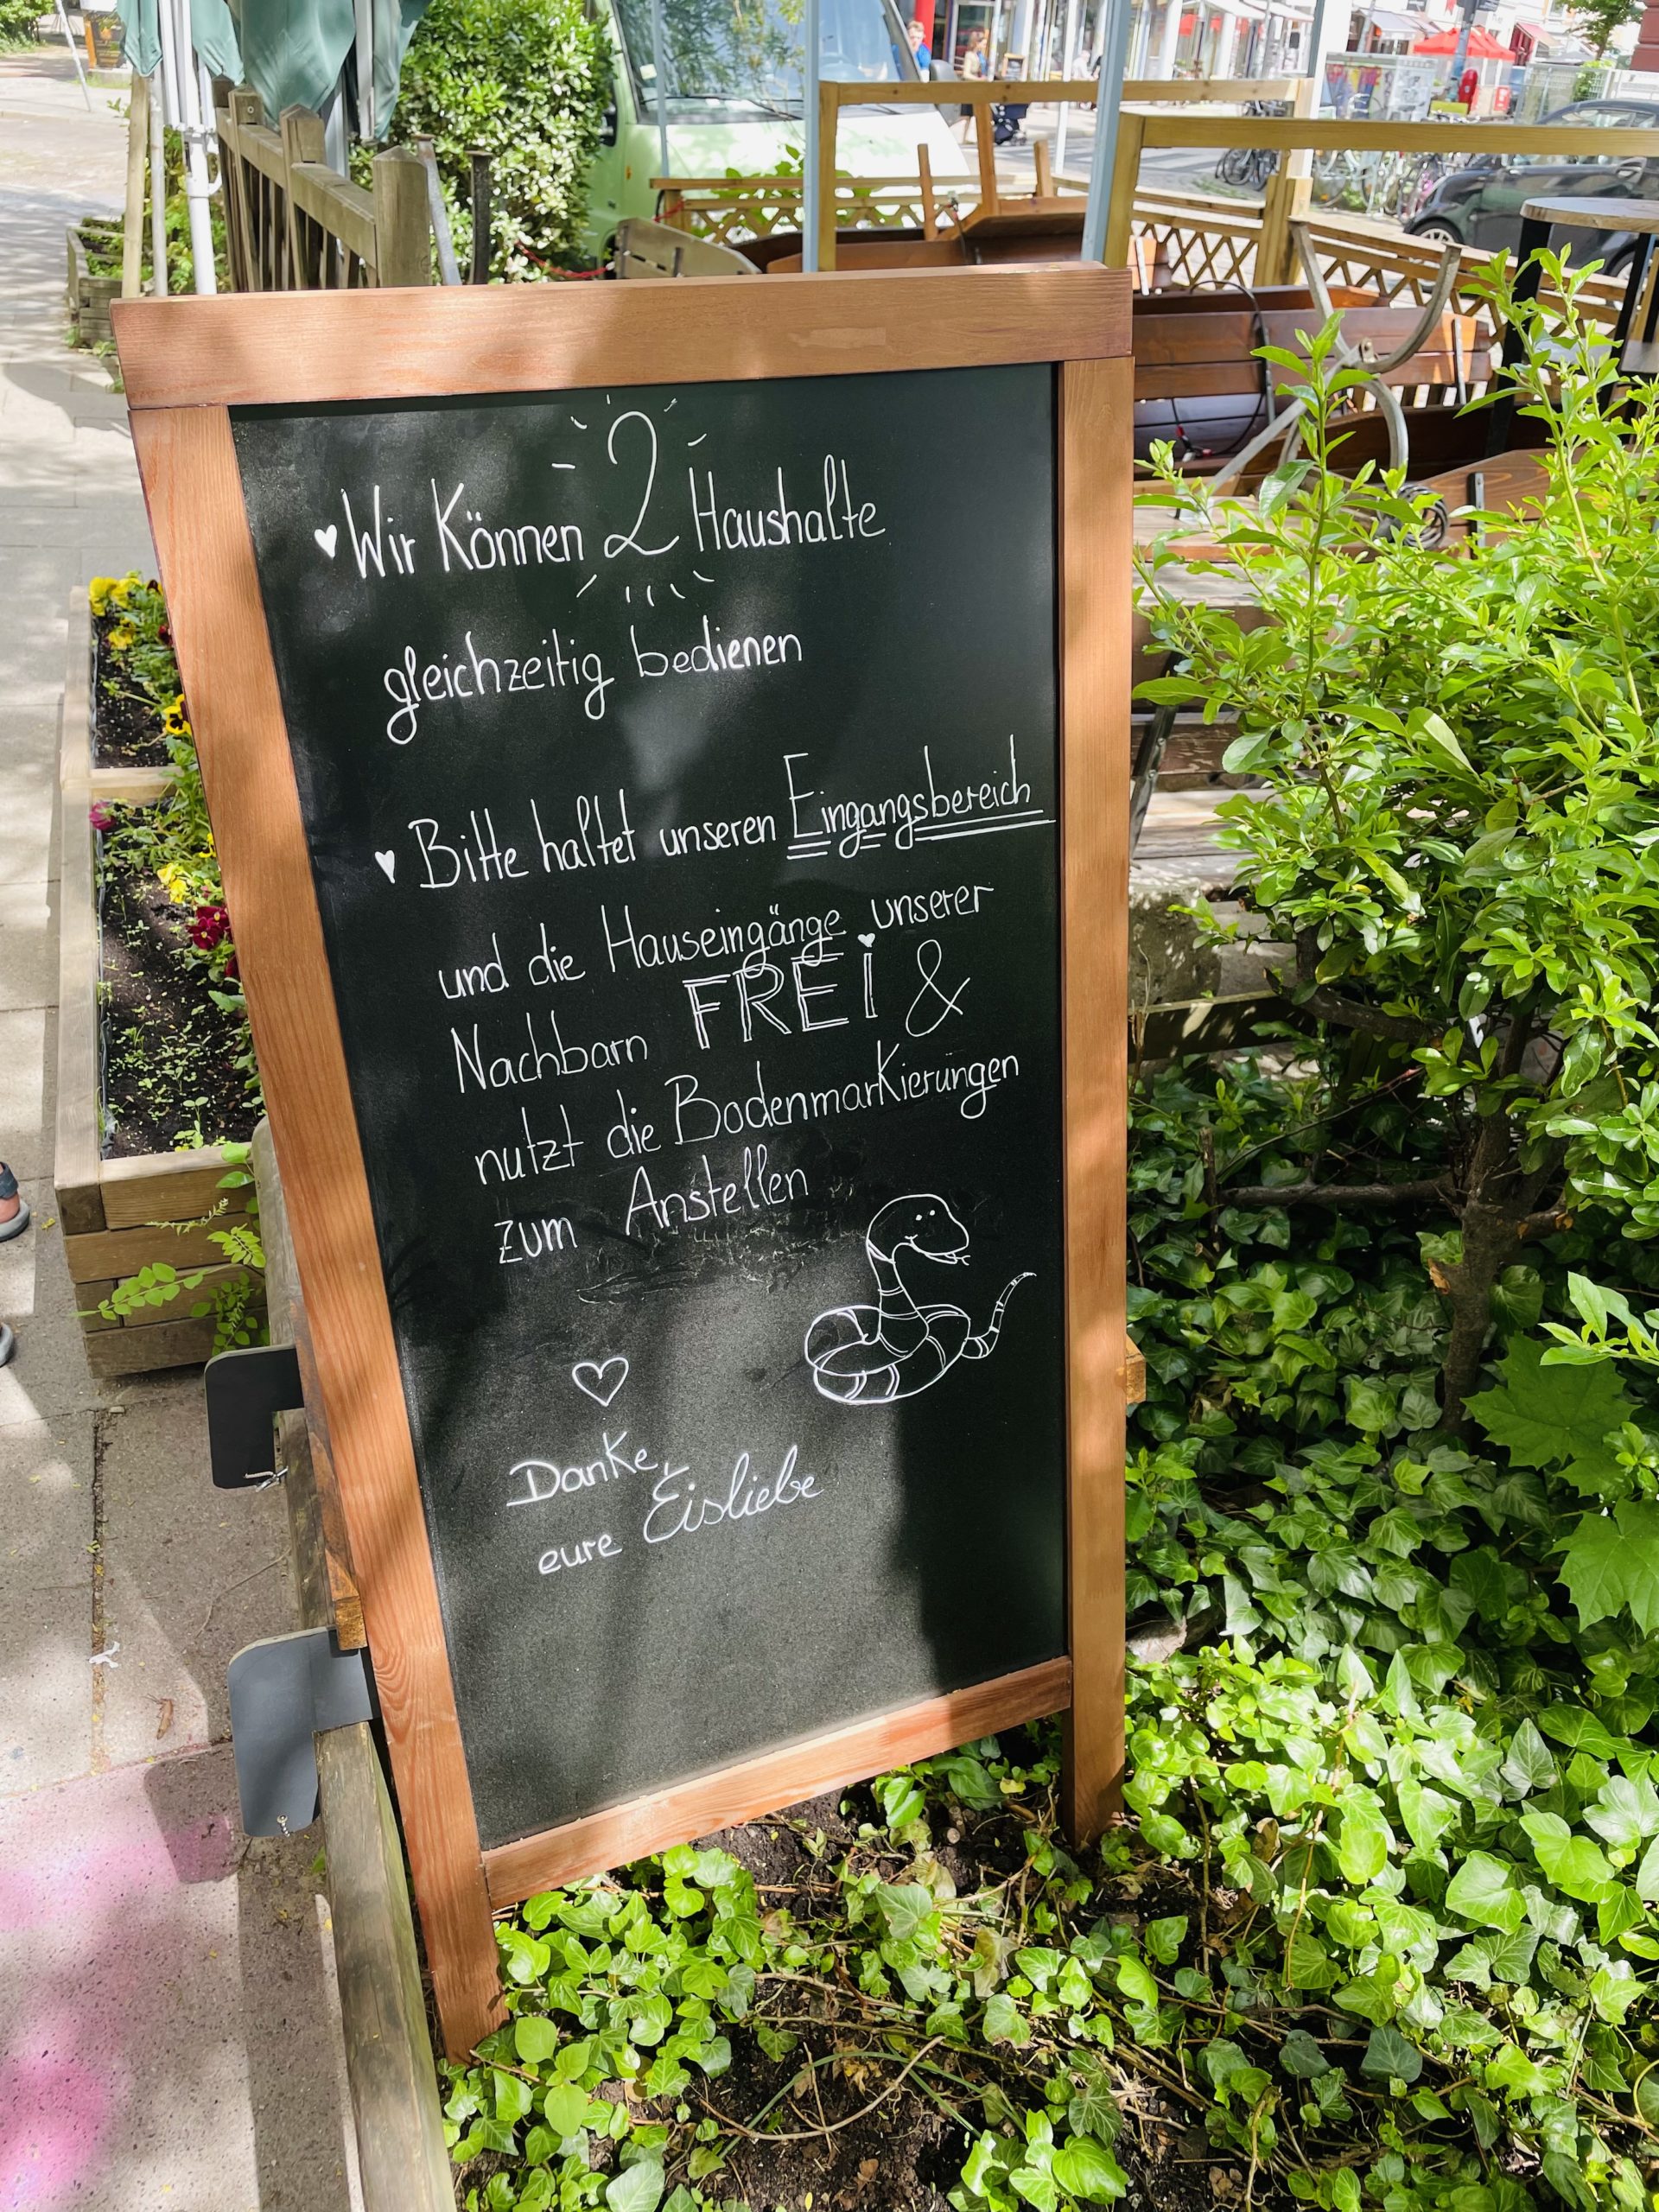 Wir Können 2 Haushalte
gleichzeitig bedienen
Bitte haltet unseren Eingangsbereich
und die Hauseingänge unserer
Nachbarn FREi &
nutzt die Bodenmarkierungen
zum Anstellen
Danke,
eure Eisliebe